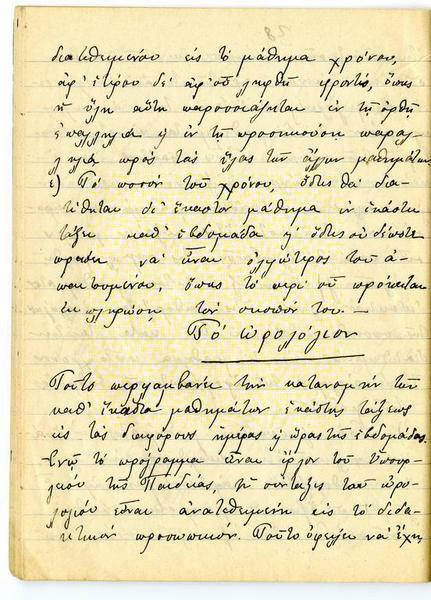 28
διατιθεμένου εἰς τὸ μάθημα χρόνου,
ἀφ' ἑτέρου δὲ ἀφ' οὗ ληφθῇ φροντίς, ὅπως
ἡ ὕλη αὕτη παρουσιάζηται ἐν τῇ ὀρθῇ
ἐπαλληλίᾳ ἢ ἐν τῇ προσηκούσῃ παραλ-
ληλίᾳ πρὸς τὰς ὕλας τῶν ἄλλων μαθημάτων
ε) Τὸ ποσὸν τοῦ χρόνου, ὅστις θὰ δια-
τίθηται δι' ἕκαστον μάθημα ἐν ἑκάστῃ
τάξει καθ' ἑβδομάδα ἢ ὅστις οὐδέποτε
πρέπει νὰ εἶναι ὀλιγώτερος τοῦ ἀ-
παιτουμένου, ὅπως τὸ περὶ οὗ πρόκειται
ἐκπληρώσῃ τὸν σκοπόν του. —
Τὸ ὡρολόγιον
Τοῦτο περιλαμβάνει τὴν κατανομὴν τῶν
καθ' ἕκαστα μαθημάτων ἑκάστης τάξεως
εἰς τὰς διαφόρους ἡμέρας ἢ ὥρας τῆς ἑβδομάδος.
Ἐνῷ τὸ πρόγραμμα εἶναι ἔργον τοῦ Ὑπουρ-
γείου τῆς Παιδείας, ἡ σύνταξις τοῦ ὡρο-
λογίου εἶναι ἀνατεθειμένη εἰς τὸ διδα-
κτικὸν προσωπικόν. Τοῦτο ὀφείλει νὰ ἔχῃ